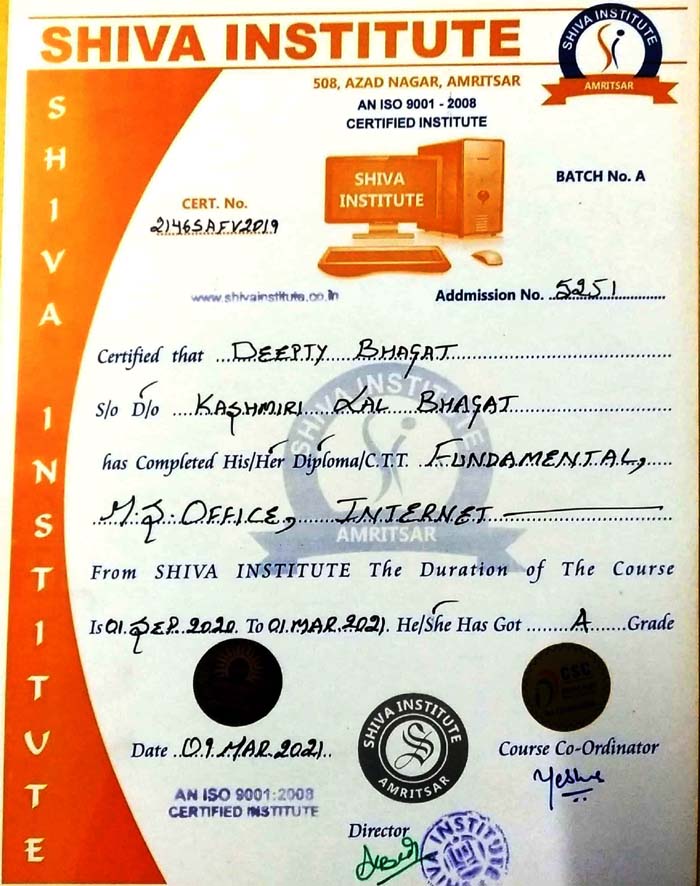 SHIVA INSTITUTE
SHIVA INSTITUTE
SHIVA INSTITUTE
AMRITSAR
508, AZAD NAGAR, AMRITSAR
AN ISO 9001 - 2008
CERTIFIED INSTITUTE
SHIVA
INSTITUTE
BATCH No. A
CERT. No.
2146SAFV2019
www.shivainstitute.co.in
Addmission No. 5251
Certified that DEEPTY BHAGAT
S/o D/o KASHMIRI LAL BHAGAT
SHIVA INSTITUTE
has Completed His/Her Diploma/C.T.T. FUNDAMENTAL,
M.S. OFFICE, INTERNET
AMRITSAR
From SHIVA INSTITUTE The Duration of The Course
Is 01.SEP.2020. To 01.MAR.2021. He/She Has Got A Grade
CSC
SHIVA INSTITUTE
S
AMRITSAR
Date 09.MAR.2021
Course Co-Ordinator
AN ISO 9001:2008
CERTIFIED INSTITUTE
Director